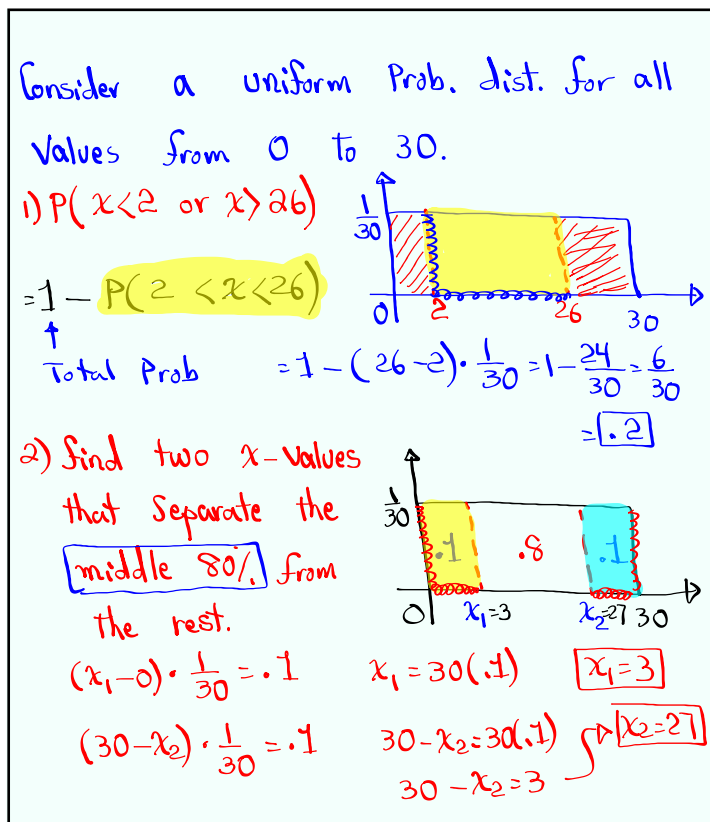 Consider a uniform Prob. dist. for all
Values from 0 to 30.
1) P( x<2 or x>26)
=1 - P( 2 <x<26)
Total Prob
1/30
0 2 26 30
=1-(26-2)·1/30=1-24/30=6/30
=.2
2) find two x-Values
that Separate the
middle 80% from
the rest.
1/30
.1 .8 .1
0 x₁=3 x₂=27 30
(x₁-0)·1/30=.1 x₁=30(.1) x₁=3
(30-x₂)·1/30=.1 30-x₂=30(.1) x₂=27
30-x₂=3